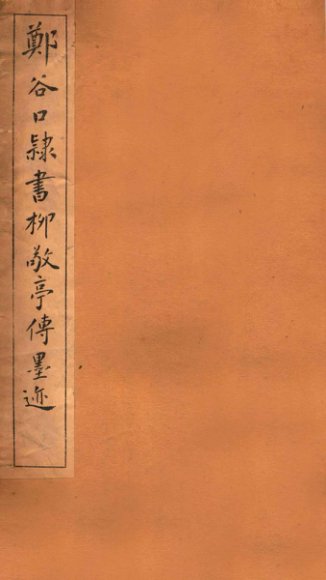 鄭谷口隸書柳敬亭傳墨迹